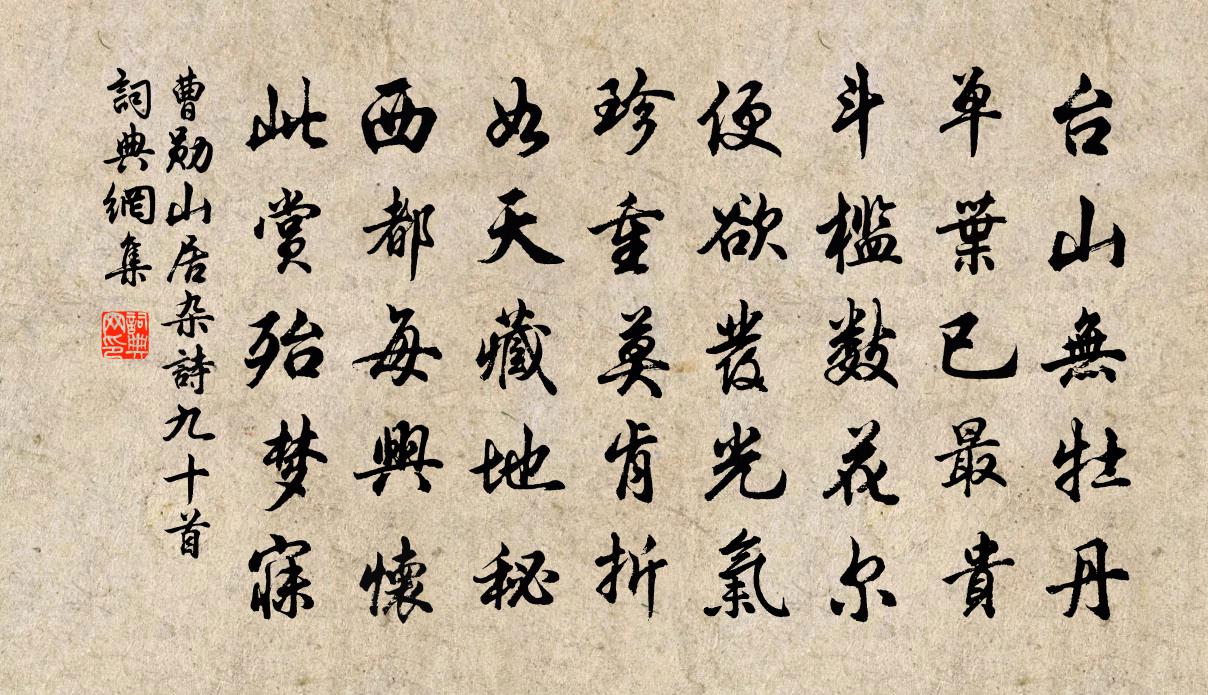 台山無牡丹
单葉已最貴
斗檻数花尔
便欲發光氣
珍重莫肯折
如天藏地秘
西都每興懷
此赏殆梦寐
曹勛山居杂詩九十首
詞典網集
詞典网印